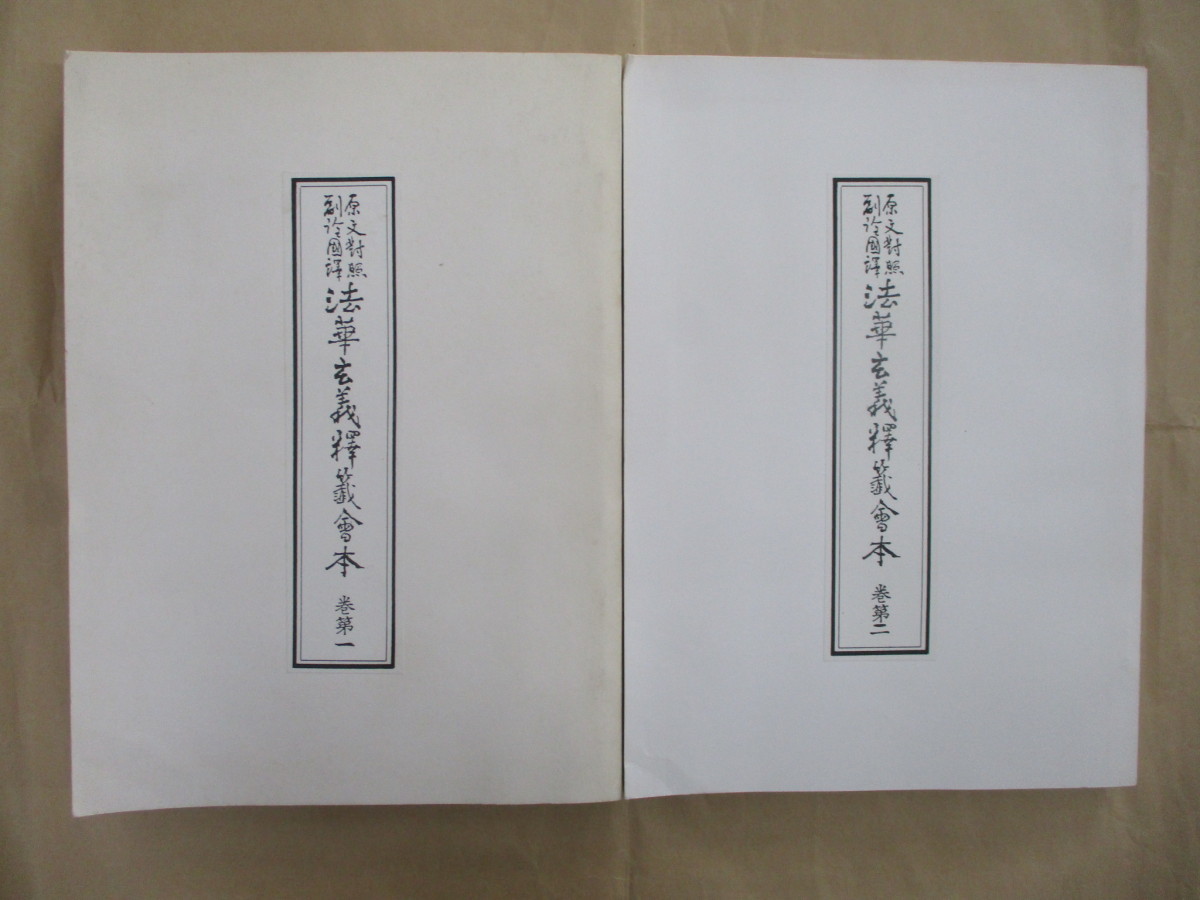 原文對照
創詮國譯
法華玄義釋籤會本
卷第一
原文對照
創詮國譯
法華玄義釋籤會本
卷第二